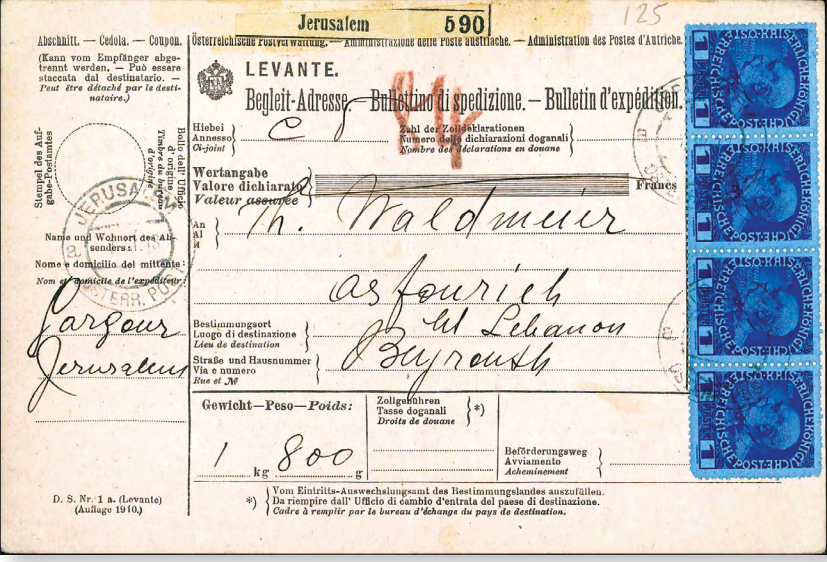 125
Jerusalem 590
Abschnitt. — Cedola. — Coupon.
(Kann vom Empfänger abge-
trennt werden. — Può essere
staccata dal destinatario. —
Peut être détaché par le desti-
nataire.)
Stempel des Auf-
gabe-Postamtes
Bollo dell' Ufficio
d'origine
Timbre du bureau
d'origine
JERUSALEM
a
ÖSTERR. POST
Name und Wohnort des Ab-
senders:
Nome e domicilio del mittente:
Nom et domicile de l'expéditeur:
Gargour
Jerusalem
D. S. Nr. 1 a. (Levante)
(Auflage 1910.)
Österreichische Postverwaltung. — Amministrazione delle Poste austriache. — Administration des Postes d'Autriche.
LEVANTE.
Begleit-Adresse. — Bullettino di spedizione. — Bulletin d'expédition.
Hiebei
Annesso
Ci-joint
Zahl der Zolldeklarationen
Numero delle dichiarazioni doganali
Nombre des déclarations en douane
Wertangabe
Valore dichiarato
Valeur assurée
Francs
An
Al
A
Th. Waldmeier
Asfourieh
Mt Lebanon
Bestimmungsort
Luogo di destinazione
Lieu de destination
Beyrouth
Straße und Hausnummer
Via e numero
Rue et №
Gewicht—Peso—Poids:
1 kg 800 g
Zollgebühren
Tasse doganali
Droits de douane
*)
Beförderungsweg
Avviamento
Acheminement
*) Vom Eintritts-Auswechslungsamt des Bestimmungslandes auszufüllen.
Da riempire dall' Ufficio di cambio d'entrata del paese di destinazione.
Cadre à remplir par le bureau d'échange du pays de destination.